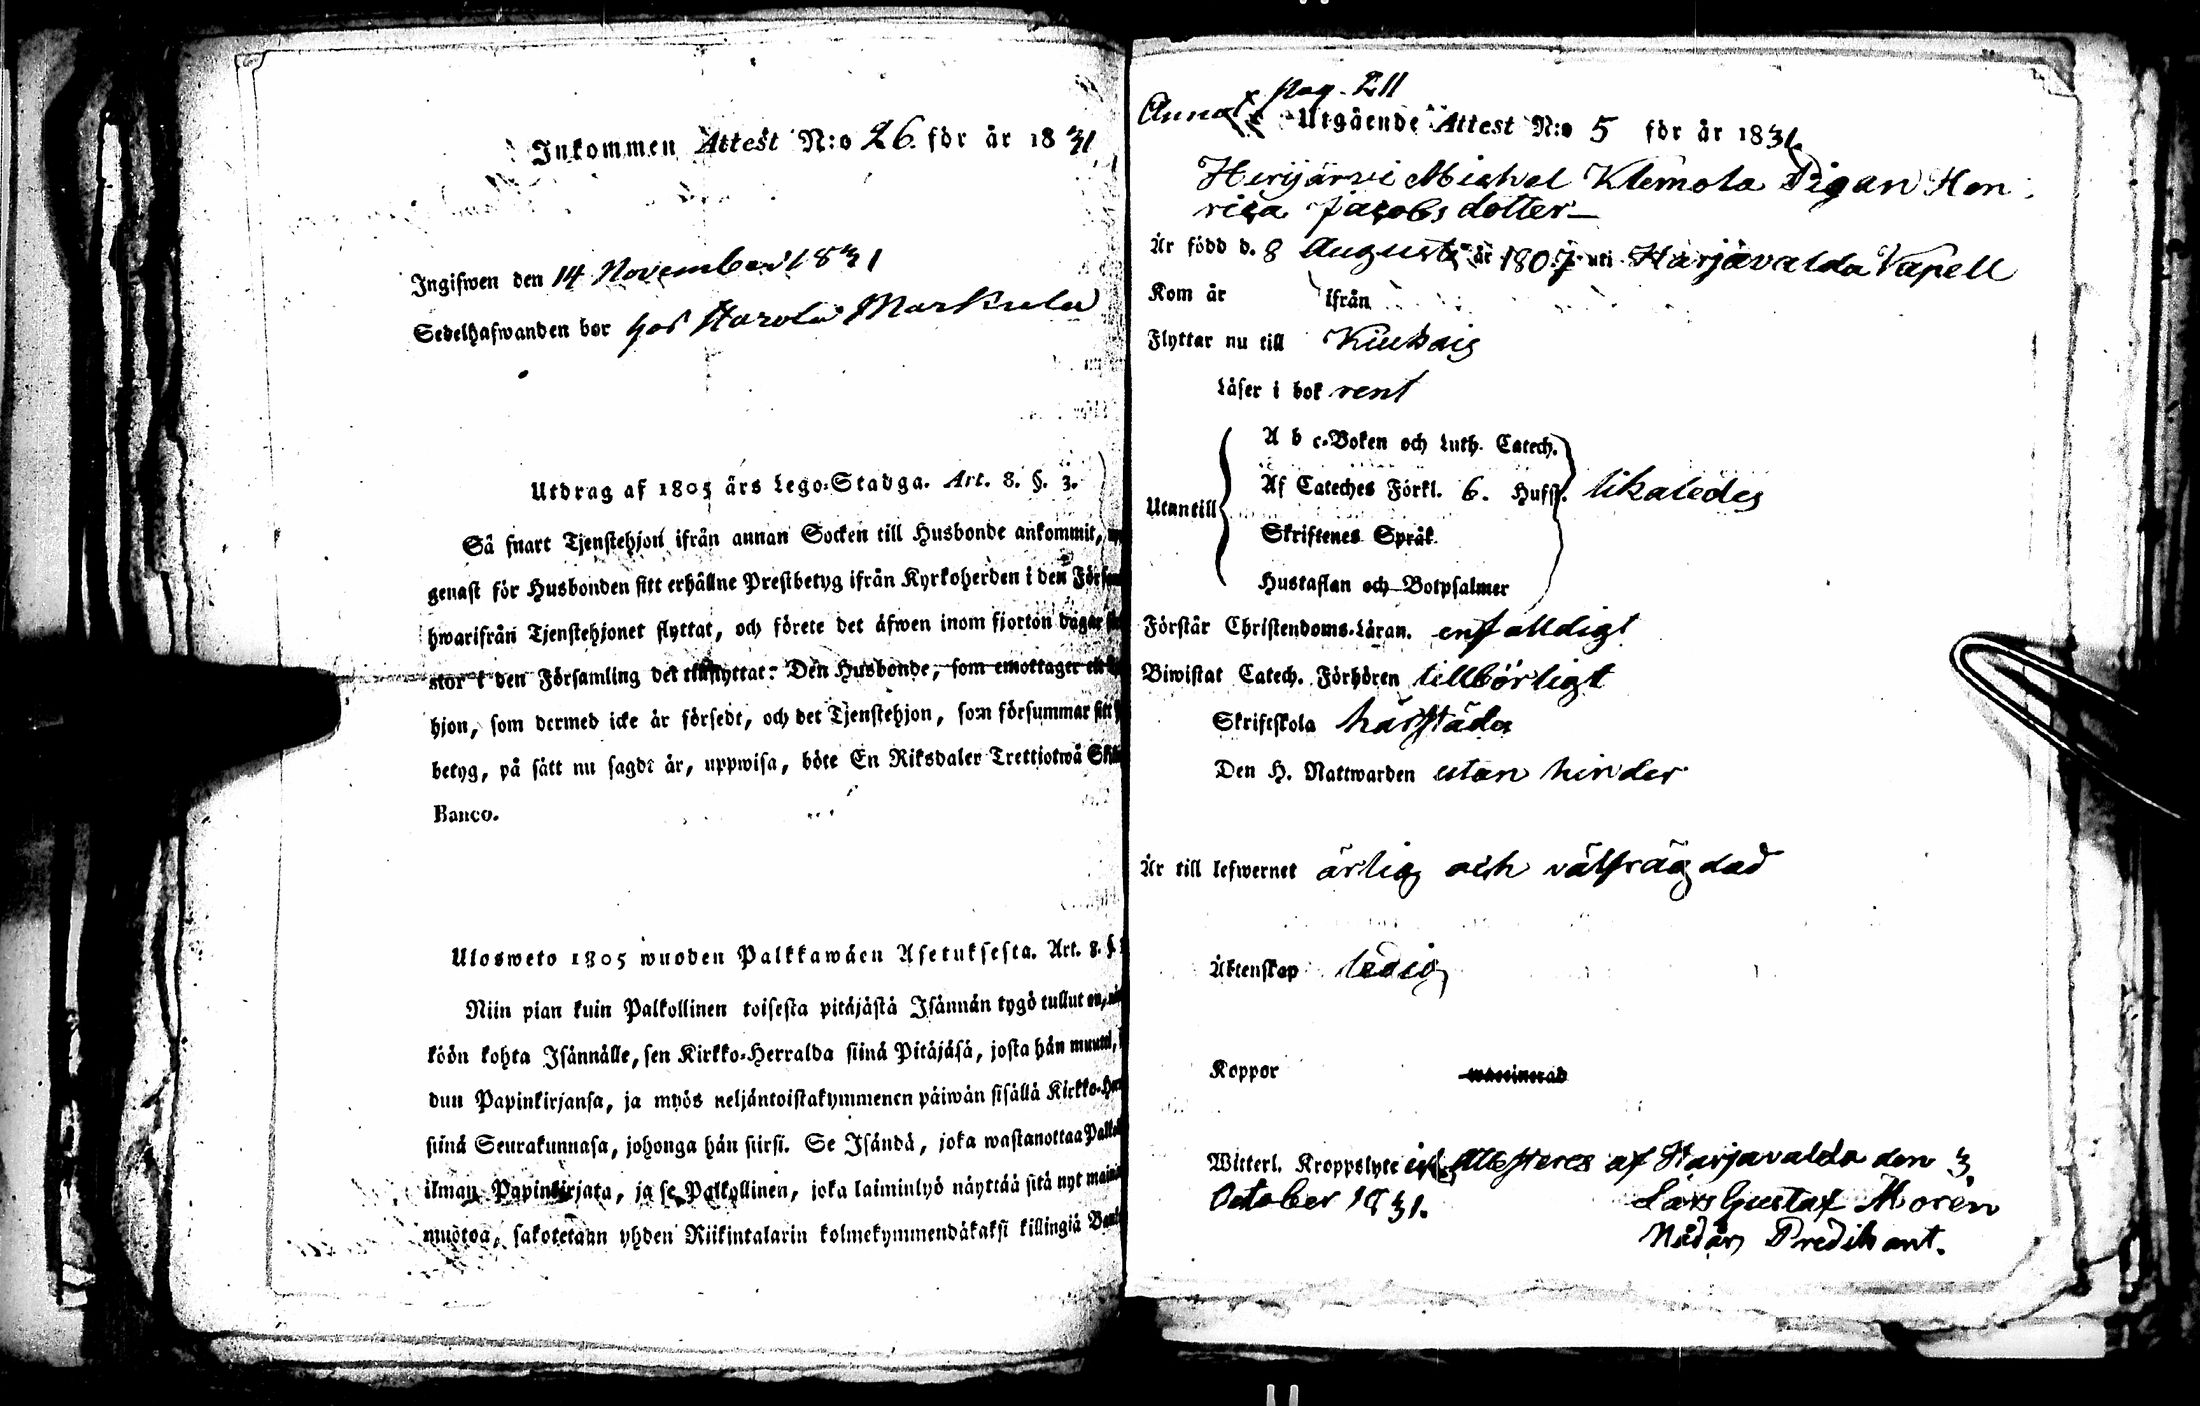 Inkommen Attest N:o 26. för år 1831
Ingifwen den 14 November 1831
Sedelhafwanden bor hos Harola Markula
Utdrag af 1805 års Lego-Stadga. Art. 8. §. 3.
Så snart Tjenstehjon ifrån annan Socken till Husbonde ankommit,
genast för Husbonden sitt erhållne Prestbetyg ifrån Kyrkoherden i den
hwarifrån Tjenstehjonet flyttat, och förete det äfwen inom fjorton dagar
stor i den Församling det tillflyttat: Den Husbonde, som emottager
hjon, som dermed icke är försedt, och det Tjenstehjon, som försummar sitt
betyg, på sätt nu sagdt är, uppwisa, böte En Riksdaler Trettiotwå
Banco.
Ulosweto 1805 wuoden Palkkawäen Asetuksesta. Art. 8. §.
Niin pian kuin Palkollinen toisesta pitäjästä Isännän tygö tullut on,
köön kohta Isännälle, sen Kirkko-Herralda siinä Pitäjäsä, josta hän
dun Papinkirjansa, ja myös neljäntoistakymmenen päiwän sisällä
siinä Seurakunnasa, johonga hän siirsi. Se Isändä, joka wastanottaa
ilman Papinkirjata, ja se Palkollinen, joka laiminlyö näyttää sitä nyt
muotoa, sakotetaan yhden Riikintalarin kolmekymmendäkaksi killingiä
Anna pag. 211
Utgående Attest N:o 5 för år 1831.
Hirijärvi Michel Klemola Pigan Hen
rica Jacobsdotter
Är född d. 8 Augusti år 1807 uti Harjavalda Capell
Kom år ifrån
Flyttar nu till Kiukais
Läser i bok rent
A b c-Boken och Luth. Catech.
Af Cateches Förkl. 6. Hufst. likaledes
Utantill
Skriftenes Språk
Hustaflan och Botpsalmer
Förstår Christendoms-Läran. enfalldigt
Biwistat Catech. Förhören tillbörligt
Skriftskola härstädes
Den H. Nattwarden utan hinder
Är till lefwernet ärlig och välfrägdad
Äktenskap ledig
Koppor waccinerad
Witterl. Kroppslyte ej Attesteres af Harjavalda den 3
October 1831. Lars Gustaf Morén
Nådår Predikant.